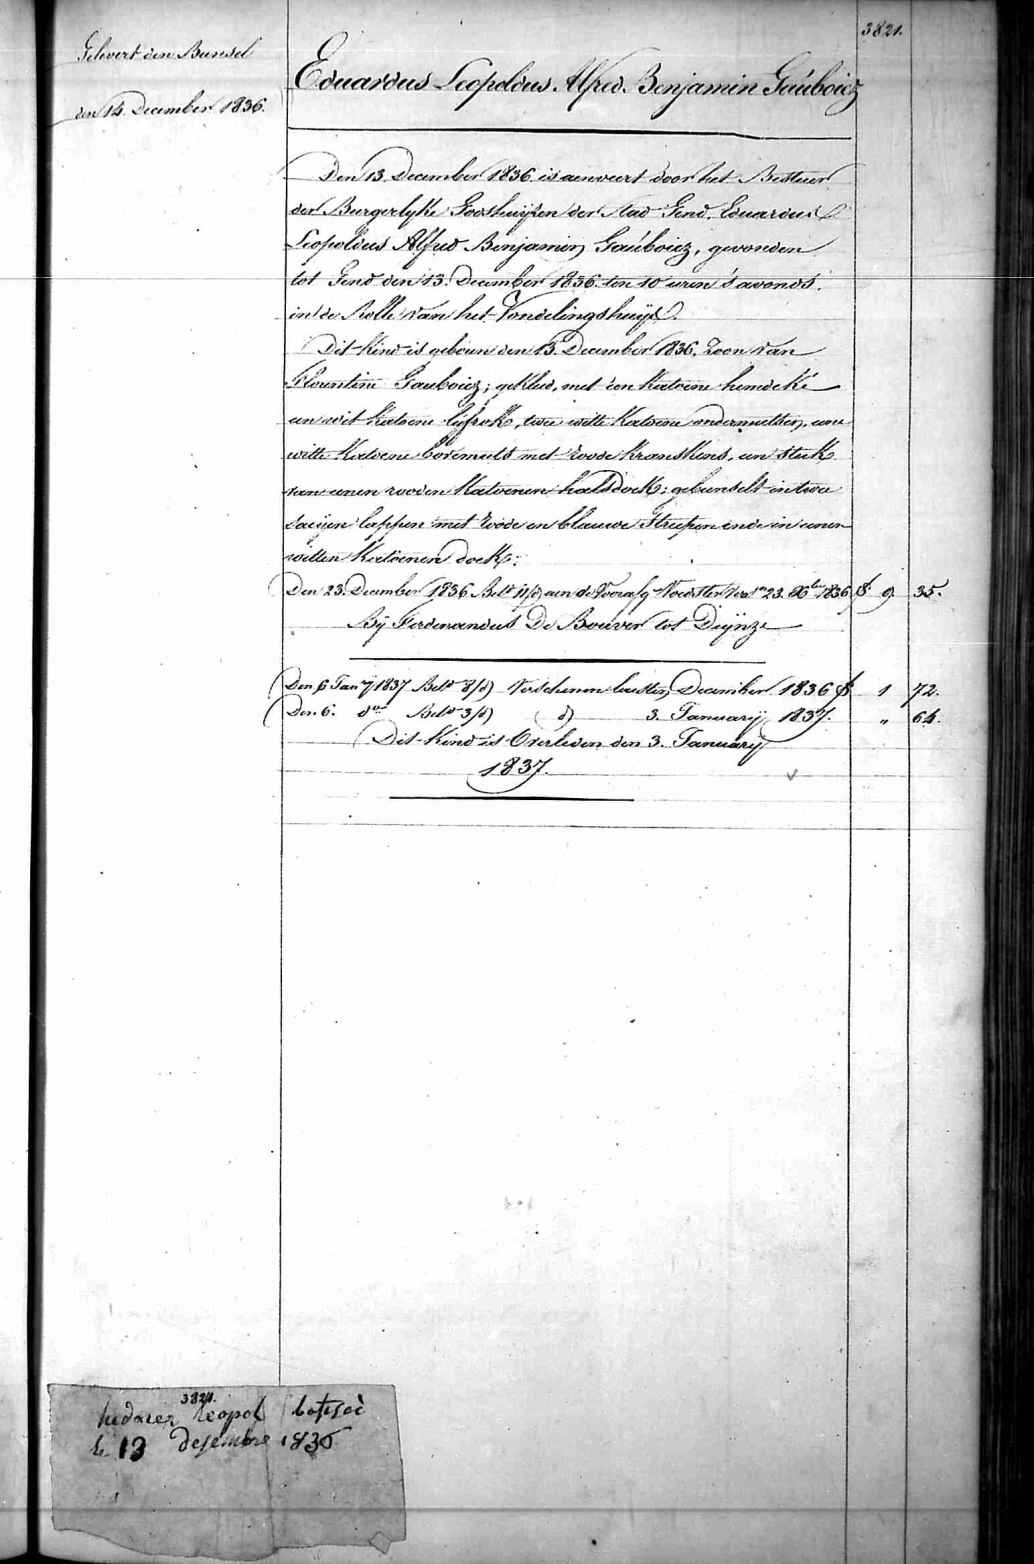 3821.
Gelevert den Bunsel
den 14 December 1836.
Eduardus Leopoldus Alfred Benjamin Gauboicz
Den 13 December 1836 is aenveert door het Bestuer
der Burgerlyke Godshuijsen der Stad Gend, Eduardus
Leopoldus Alfred Benjamin Gauboicz, gevonden
tot Gend den 13. December 1836. ten 10 uren s'avonds
in de Rolle van het Vondelingshuijs.
Dit Kind is geboren den 13 December 1836. Zoon van
Florentine Gauboicz; gekleed, met een Katoene hemdeke
een wit Katoene lijfrok, twee witte Katoene ondermutsen, eene
witte Katoene bovemuts met roode Kranskens, een stuk
van eenen rooden Katoenen halsdoek; gebunselt in twee
saeijen lappen met roode en blauwe streepen ende in eenen
witten Katoenen doek:
Den 23. December 1836 Bet. aen de Voedster 23. Xber 1836 9. 35.
Bij Ferdenandus De Bouver tot Deijnze
Den 6 Janry 1837 Bet. Verschenen December 1836 1 72.
Den 6. do Bet. d) 3. January 1837. " 64.
Dit Kind is Overleden den 3. January
1837.
3821.
hedouer leopol batisoè
le 13 desembre 1836